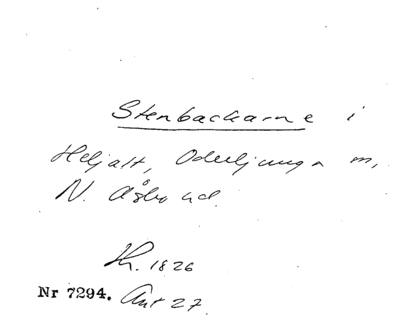 Stenbackarne i
Heljalt, Oderljunga m,
N. Åsbo hd.
Kr. 1826
Nr 7294. Ant 27